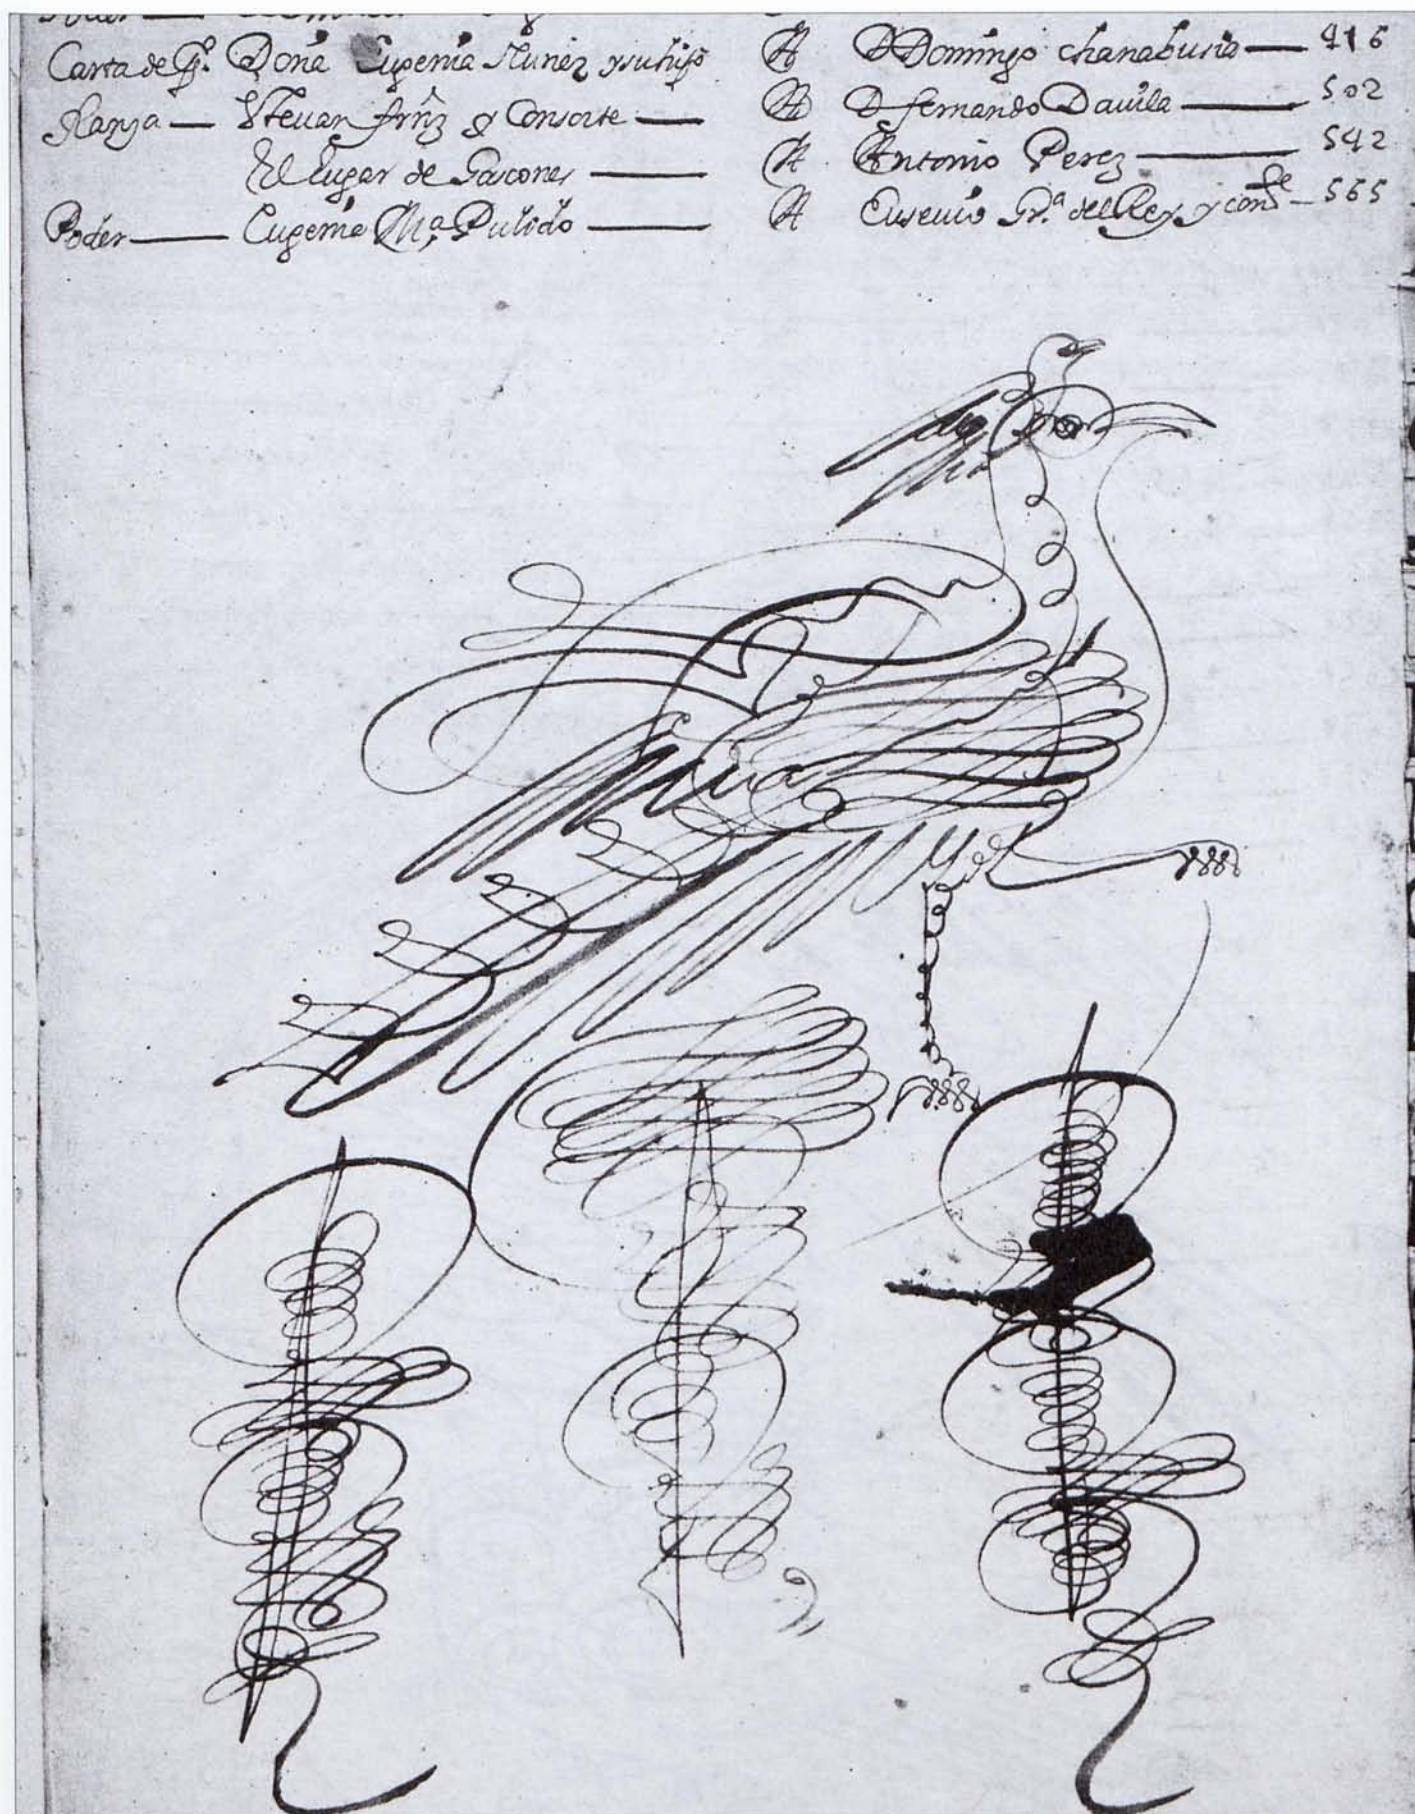 Carta de Pº. Doña Eugenia Nunez y su hijo A D Domingo chanaburia — 416
— Stevan frñz y Consorte — A D fernando Davila — 502
El Lugar de Gascones — A Antonio Perez — 542
Poder — Eugenia Mª Pulido — A Eusevio Grª. del Rey y consᵗᵉ — 565